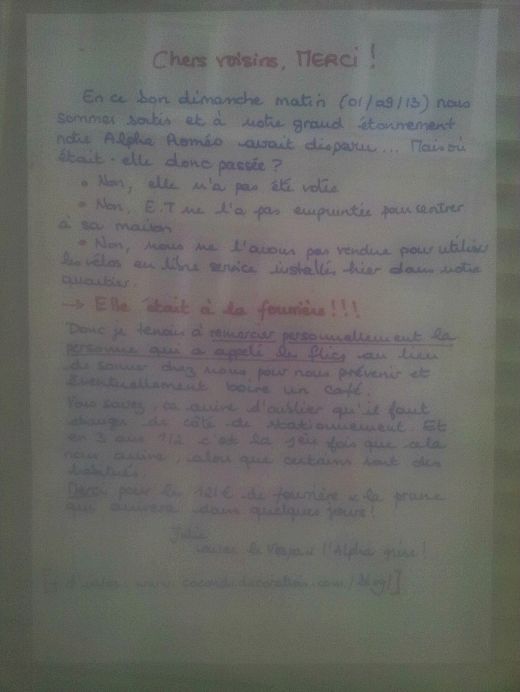 Chers voisins, MERCI !
En ce bon dimanche matin (01/09/13) nous
sommes sortis et à notre grand étonnement
notre Alpha Roméo avait disparu... Mais où
était-elle donc passée ?
• Non, elle n'a pas été volée
• Non, E.T ne l'a pas empruntée pour rentrer
à sa maison
• Non, nous ne l'avons pas vendue pour utiliser
les vélos en libre service installés hier dans notre
quartier.
→ Elle était à la fourrière !!!
Donc je tenais à remercier personnellement la
personne qui a appelé les flics au lieu
de sonner chez nous pour nous prévenir et
éventuellement boire un café.
Vous savez, ça arrive d'oublier qu'il faut
changer de côté de stationnement. Et
en 3 ans 1/2 c'est la fois que cela
nous arrive, alors que certains sont des
habitués.
Merci pour les 121€ de fourrière & la prune
qui arrivera dans quelques jours !
Julie
l'Alpha grise !
[+ d'infos : www.cocondedecoration.com/blog/]